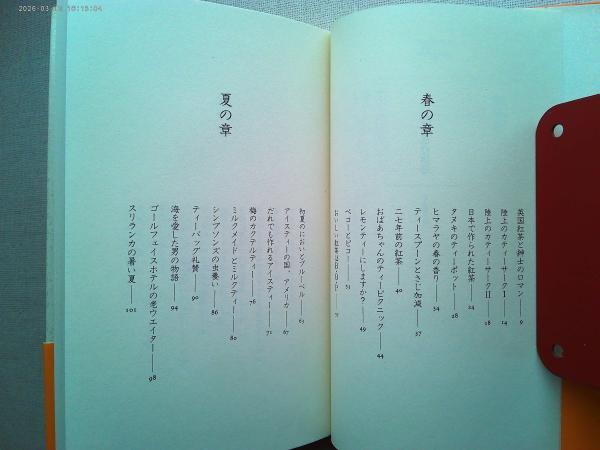 春の章
英国紅茶と紳士のロマン――9
陸上のカティーサークⅠ――14
陸上のカティーサークⅡ――18
日本で作られた紅茶――24
タヌキのティーポット――28
ヒマラヤの春の香り――34
ティースプーンとさじ加減――37
二七年前の紅茶――40
おばあちゃんのティーピクニック――44
レモンティーにしますか?――49
ペコーとピコー――53
おいしい紅茶は
夏の章
初夏のにおいとブルーベル――63
アイスティーの国、アメリカ――67
だれでも作れるアイスティー――71
梅のカクテルティー――76
ミルクメイドとミルクティー――80
シンプソンズの虫養い――86
ティーバッグ礼賛――90
海を愛した男の物語――94
ゴールフェイスホテルの老ウエイター――98
スリランカの暑い夏――101